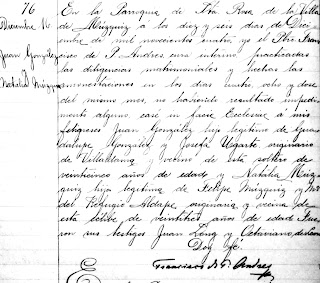 76
Diciembre 16
Juan González
y
Natalia Múzquiz
En la Parroquia de Sta Rosa de la Villa
de Múzquiz á los diez y seis dias de Dici
embre de mil novecientos cuatro, yo el Pbro Fran
cisco de P. Andres, cura interino, practicadas
las diligencias matrimoniales y hechas las
amonestaciones en los dias cuatro, ocho y doce
del mismo mes, no habiendo resultado impedi
mento alguno, casé in facie Ecclesiae á mis
feligreses Juan González hijo legítimo de Gua
dalupe González y Josefa Ugarte, originario
de Villaldama y vecino de esta, soltero de
veinticinco años de edad y Natalia Múz
quiz hija legitima de Felipe Múzquiz y Ma
del Refugio Aldape, originaria y vecina de
esta, célibe de veintitres años de edad. Fue
ron sus testigos Juan Long y Octaviano de
Doy fé.
Francisco de P. Andres